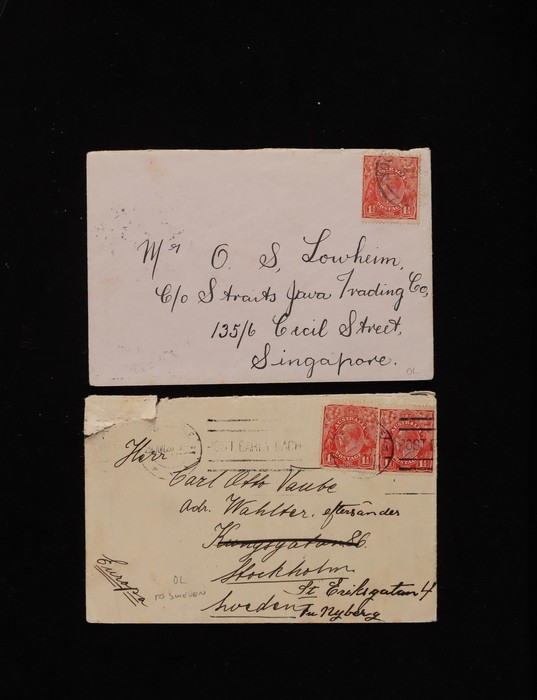 Mrs O. S. Lowheim,
C/o Straits Java Trading Co,
135/6 Cecil Street,
Singapore.
OL
1½ 1½
POSTAGE
AUSTRALIA
1½
POST EARLY EACH
POST
Herr
Carl Otto Vaube
adr. Wahlter. eftersänder
Kungsgatan 86.
Stockholm
St Eriksgatan 4
Sweden
Fru Nyberg
Europa
OL
TO SWEDEN